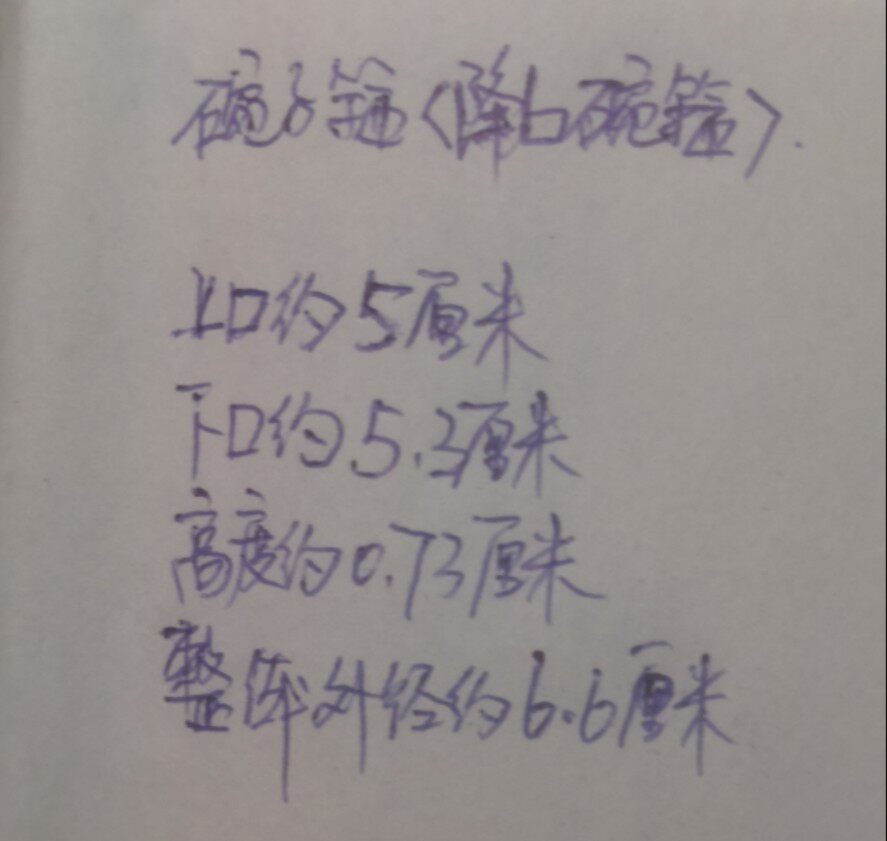 碗子箍〈降口碗箍〉.
上口约5厘米
下口约5.3厘米
高度约0.73厘米
整体外径约6.6厘米